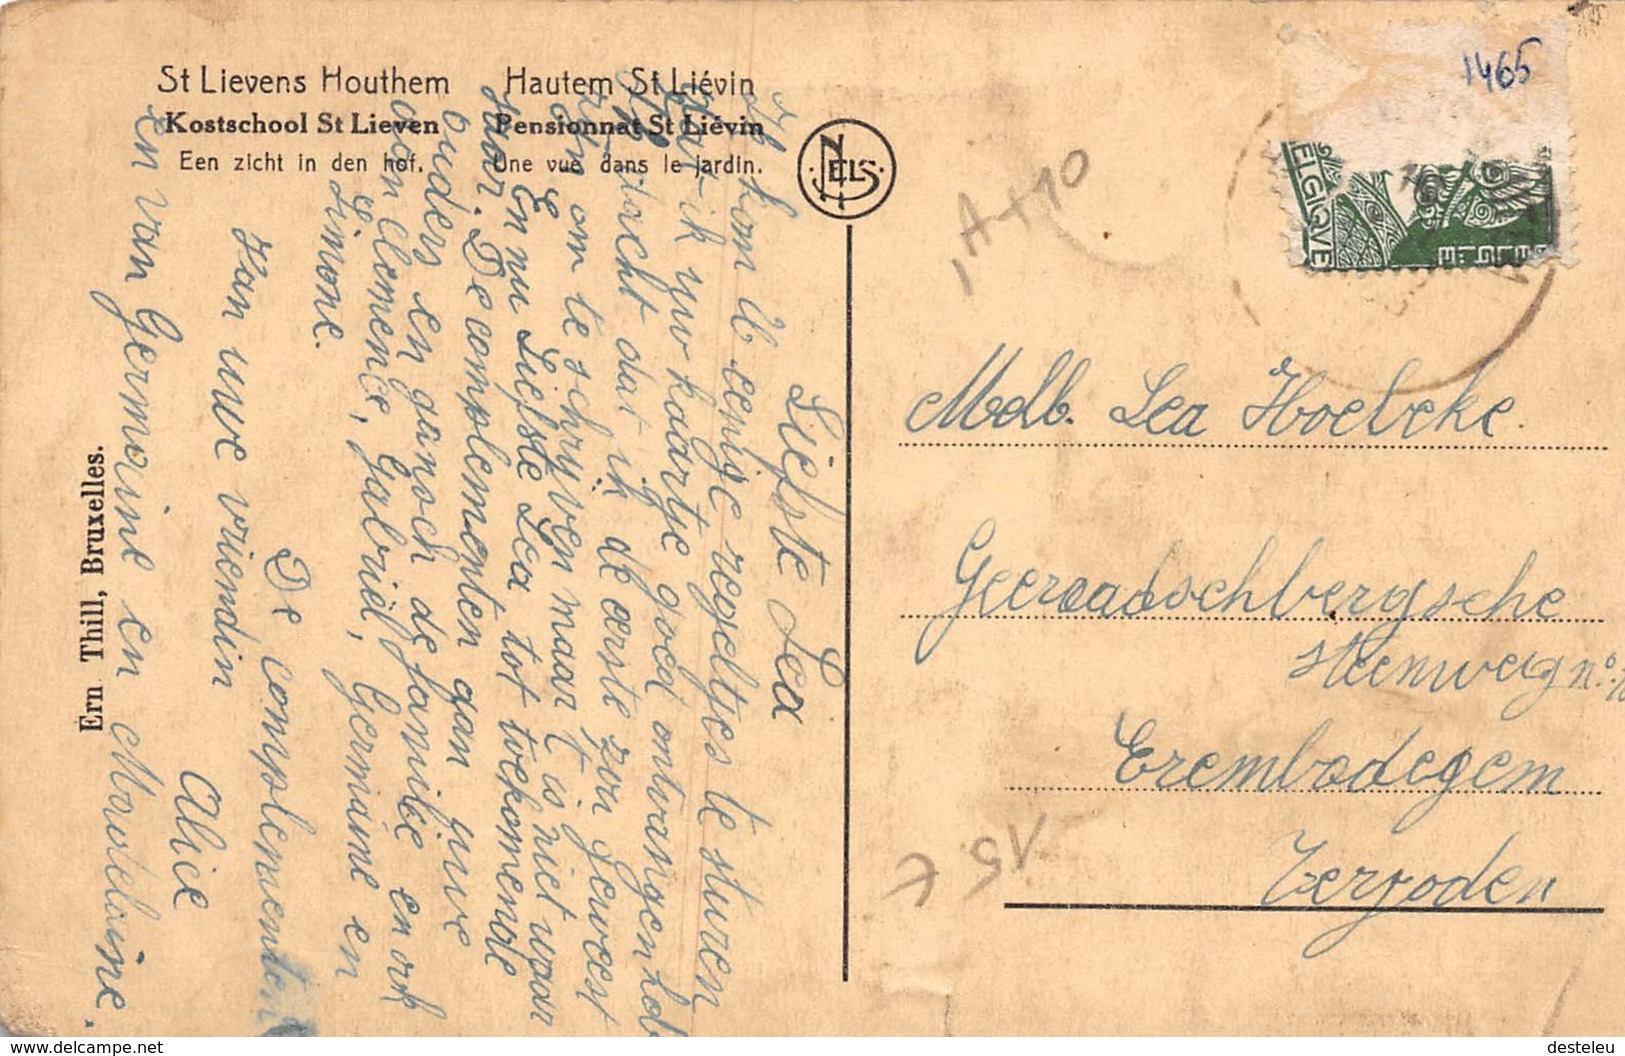 St Lievens Houthem
Kostschool St Lieven
Een zicht in den hof.
Hautem St Liévin
Pensionnat St Liévin
Une vue dans le jardin.
NELS
Ern Thill, Bruxelles.
1465
BELGIQUE
BELGIË
A + 10
Liefste Lea
Ik kom U eenige regeltjes te sturen
dat ik uw kaartje goed ontvangen heb
Ik dacht dat ik de eerste zou geweest
zijn om te schryven maar t is niet waar
En nu Liefste Lea tot toekomende
jaar. De complementen aan juwe
ouders en ganoch de familie en ook
aan Clemence, Gabriël, Germaine en
Simone.
De complementen
van uwe vriendin
Alice
en van Germaine en Madelaine.
Melb. Lea Hoebeke
Geeraadschbergsche
steenweg nº.
Erembodegem
Terjoden